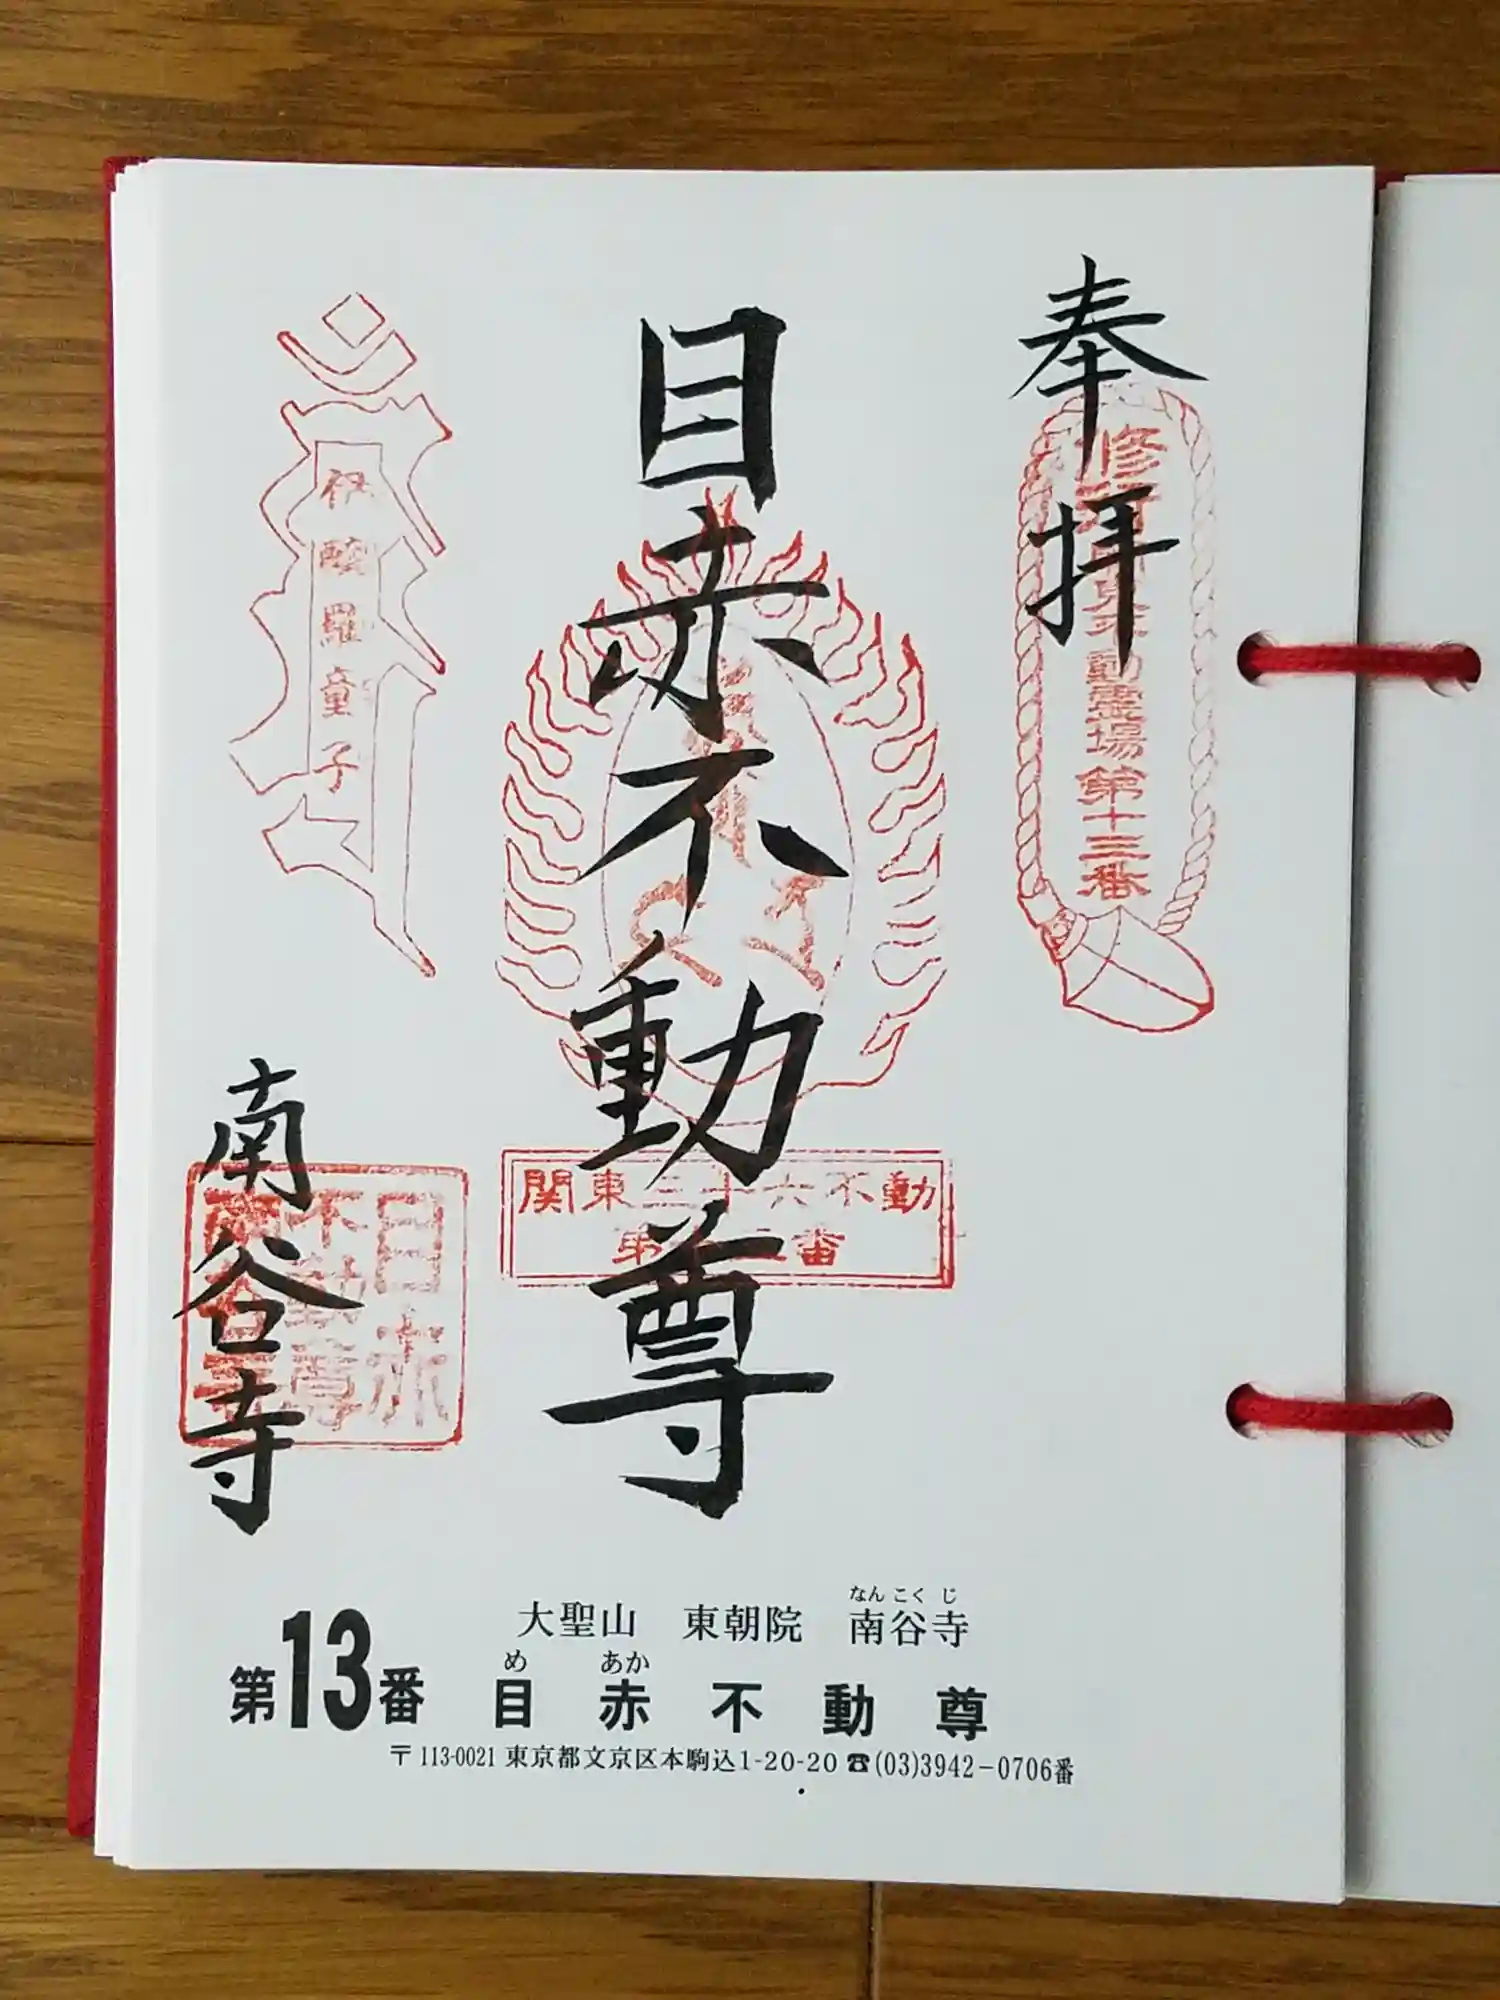 奉拝
修行 関東不動霊場第十三番
目赤不動尊
関東三十六不動
第十三番
童子
南谷寺
目赤
不動尊
南谷寺
大聖山 東朝院 南谷寺
なんこくじ
第13番 目赤不動尊
め あか
〒113-0021 東京都文京区本駒込1-20-20 ☎(03)3942-0706番